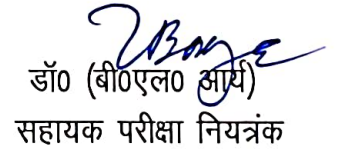 डॉ0 (बी0एल0 आर्य)
सहायक परीक्षा नियत्रंक